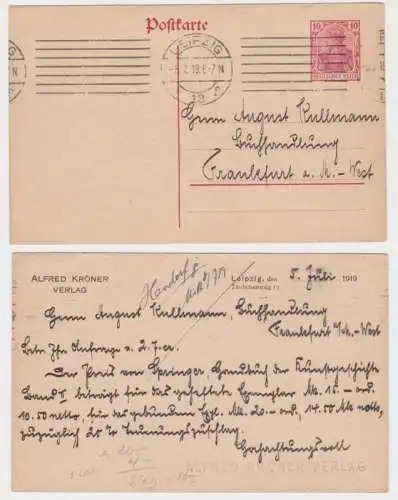 Postkarte
10
DEUTSCHES REICH
LEIPZIG
-5.7.19.6-7N
Herrn August Kullmann
Buchhandlung
Frankfurt a. M.-West
ALFRED KRÖNER
VERLAG
Leipzig, den 5. Juli 1919
Herrn August Kullmann, Buchhandlung
Frankfurt a/M.-West
Betr. Ihr. Anfrage v. 2.7.cr.
Der Preis von Springer, Handbuch der Kunstgeschichte
Band II beträgt für das geheftete Exemplar Mk. 15.- ord.
10.50 netto, für das gebundene Expl. Mk. 20.- ord., 14.00 Mk netto,
zuzüglich 25 % Teuerungszuschlag.
Hochachtungsvoll
ALFRED KRÖNER VERLAG